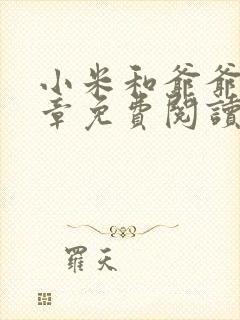 小米和爺爺
章免費閱讀
羅天